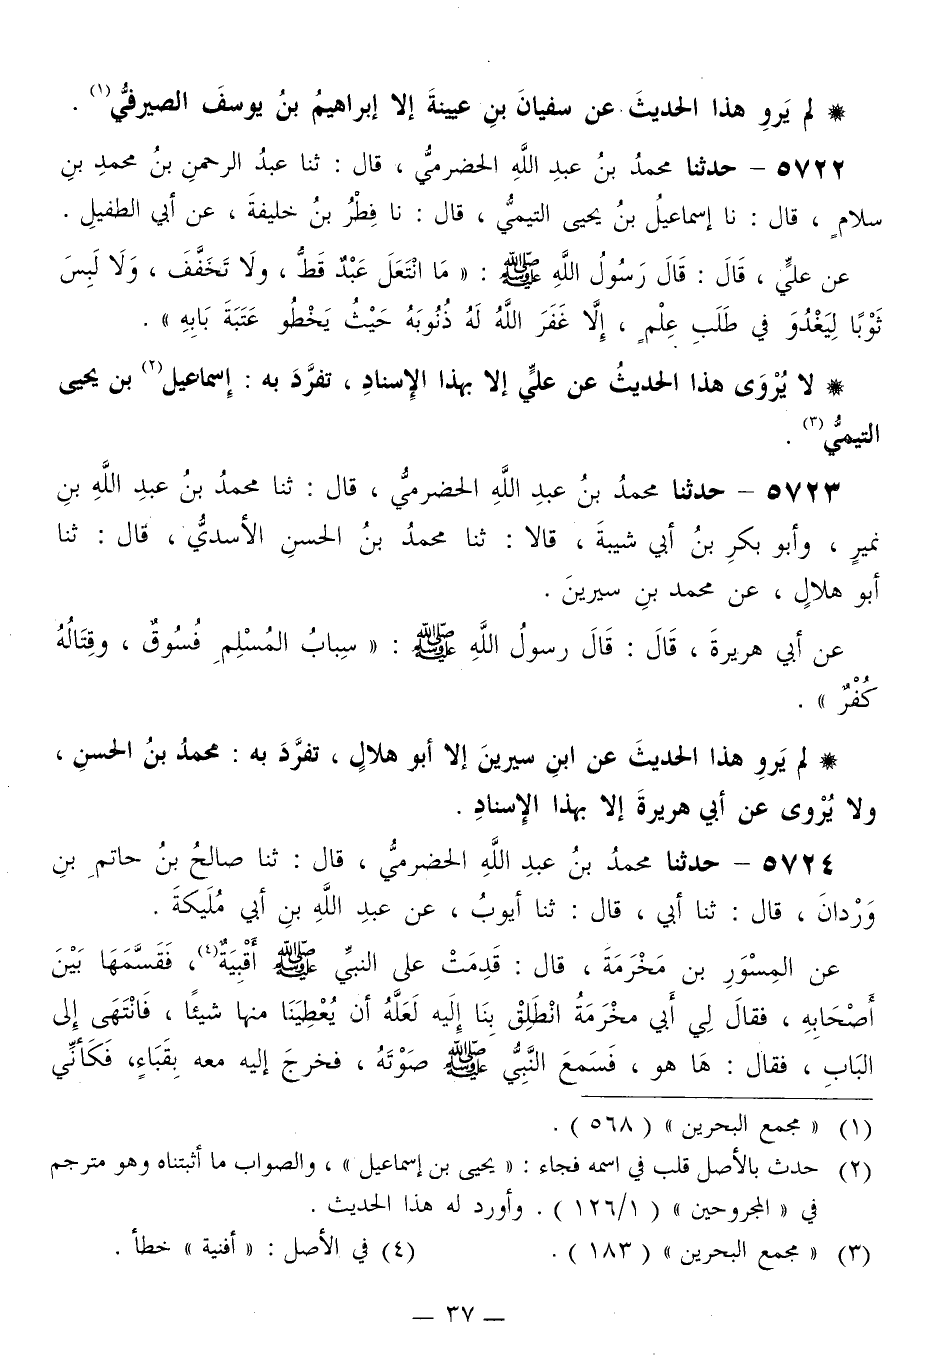 * لم يَروِ هذا الحديثَ عن سفيانَ بنِ عيينةَ إلا إبراهيمُ بنُ يوسفَ الصيرفيُّ(١) .
٥٧٢٢ – حدثنا محمدُ بنُ عبدِ اللَّهِ الحضرميُّ ، قال : ثنا عبدُ الرحمنِ بنُ محمدِ بنِ
سلامٍ ، قال : نا إسماعيلُ بنُ يحيى التيميُّ ، قال : نا فِطْرُ بنُ خليفةَ ، عن أبي الطفيلِ .
عن عليٍّ ، قَالَ : قَالَ رَسُولُ اللَّهِ ﷺ : « مَا انْتَعَلَ عَبْدٌ قَطُّ ، ولَا تَخَفَّفَ ، وَلَا لَبِسَ
ثَوْبًا لِيَغْدُوَ في طَلَبِ عِلْمٍ ، إِلَّا غَفَرَ اللَّهُ لَهُ ذُنُوبَهُ حَيْثُ يَخْطُو عَتَبَةَ بَابِهِ » .
* لا يُرْوَى هذا الحديثُ عن عليٍّ إلا بهذا الإسنادِ ، تفرَّدَ به : إسماعيل(٢) بن يحيى
التيميُّ(٣) .
٥٧٢٣ – حدثنا محمدُ بنُ عبدِ اللَّهِ الحضرميُّ ، قال : ثنا محمدُ بنُ عبدِ اللَّهِ بنِ
نميرٍ ، وأبو بكرِ بنُ أبي شيبةَ ، قالا : ثنا محمدُ بنُ الحسنِ الأسديُّ ، قال : ثنا
أبو هلالٍ ، عن محمد بنِ سيرينَ .
عن أبي هريرةَ ، قَالَ : قَالَ رسولُ اللَّهِ ﷺ : « سِبابُ المُسْلِمِ فُسُوقٌ ، وقِتَالُهُ
كُفْرٌ » .
* لم يَروِ هذا الحديثَ عن ابنِ سيرينَ إلا أبو هلالٍ ، تفرَّدَ به : محمدُ بنُ الحسنِ ،
ولا يُرْوى عن أبي هريرةَ إلا بهذا الإسنادِ .
٥٧٢٤ – حدثنا محمدُ بنُ عبدِ اللَّهِ الحضرميُّ ، قال : ثنا صالحُ بنُ حاتمِ بنِ
وَرْدانَ ، قال : ثنا أبي ، قال : ثنا أيوبُ ، عن عبدِ اللَّهِ بنِ أبي مُلَيكةَ .
عن المِسْوَرِ بن مَخْرَمَةَ ، قال : قَدِمَتْ على النبيِّ ﷺ أَقْبِيَةٌ(٤)، فَقَسَّمَهَا بَيْنَ
أَصْحَابِهِ ، فقالَ لِي أَبي مخْرَمةُ انْطَلِقْ بِنَا إِلَيه لَعَلَّهُ أن يُعْطِيَنَا منها شيئًا ، فَانْتَهَى إِلى
البَابِ ، فقال : هَا هو ، فَسَمعَ النَّبِيُّ ﷺ صَوْتَهُ ، فخرجَ إليه معه بِقَبَاءٍ، فَكَأَنِّي
(١) « مجمع البحرين » ( ٥٦٨ ) .
(٢) حدث بالأصل قلب في اسمه فجاء : « يحيى بن إسماعيل » ، والصواب ما أثبتناه وهو مترجم
في « المجروحين » ( ١٢٦/١ ) . وأورد له هذا الحديث .
(٣) « مجمع البحرين » ( ١٨٣ ) . (٤) في الأصل : « أفنية » خطأ .
– ٣٧ –